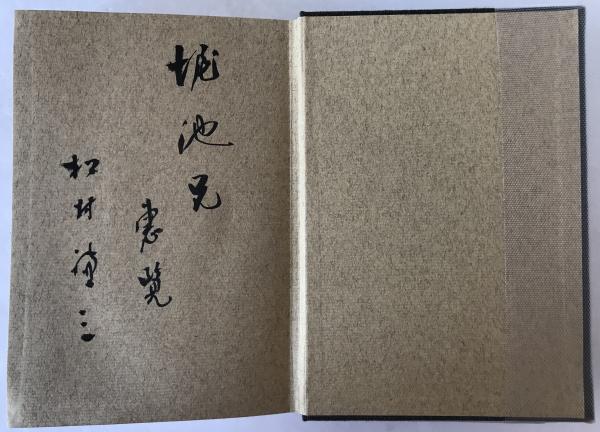 堀池兄
恵覧
松村謙三